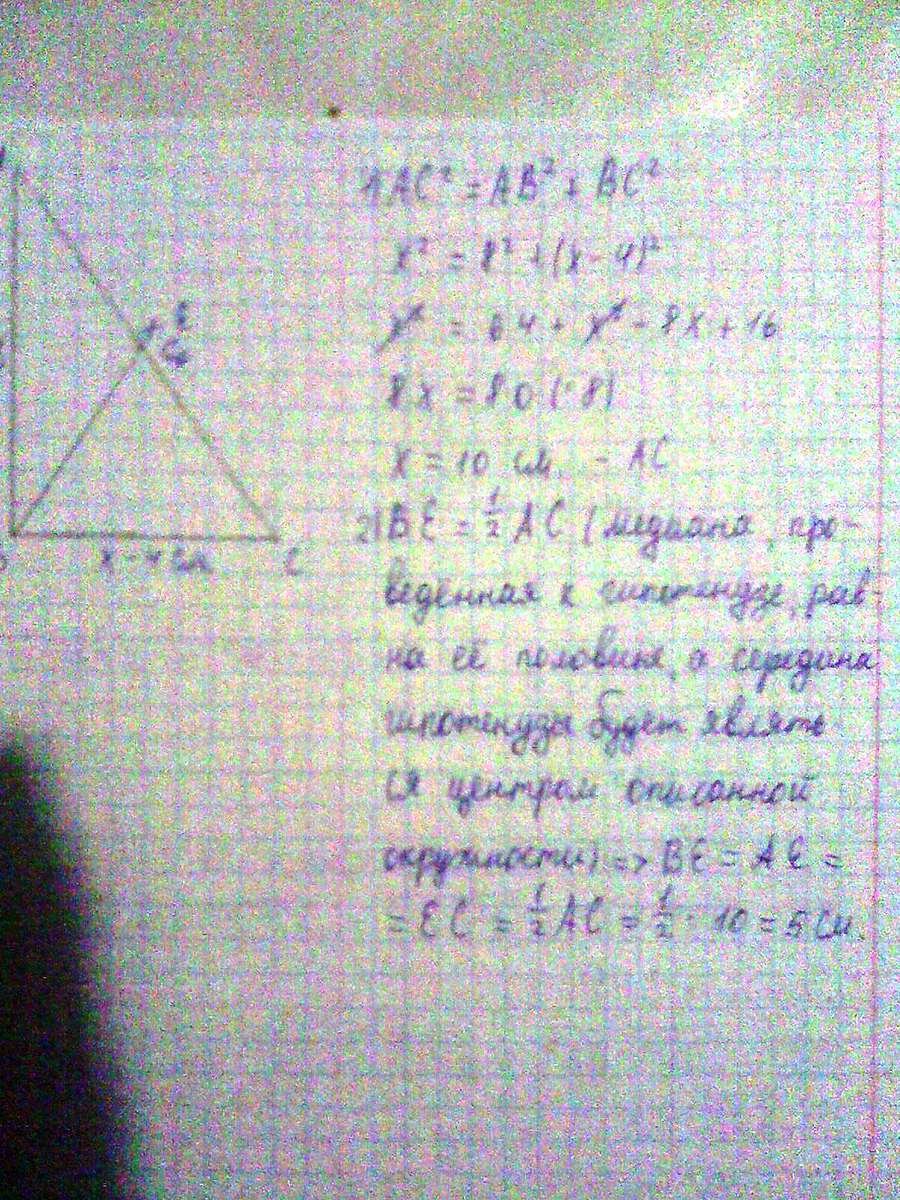 1) AC² = AB² + BC²
x² = 8² + (x - 4)²
x² = 64 + x² - 8x + 16
8x = 80 (: 8)
x = 10 см. - AC
E
x - 4 см
C
2) BE = ½ AC (медиана, про-
ведённая к гипотенузе, рав-
на её половине, а середина
гипотенузы будет являть
ся центром описанной
окружности) => BE = AE =
= EC = ½ AC = ½ · 10 = 5 см.